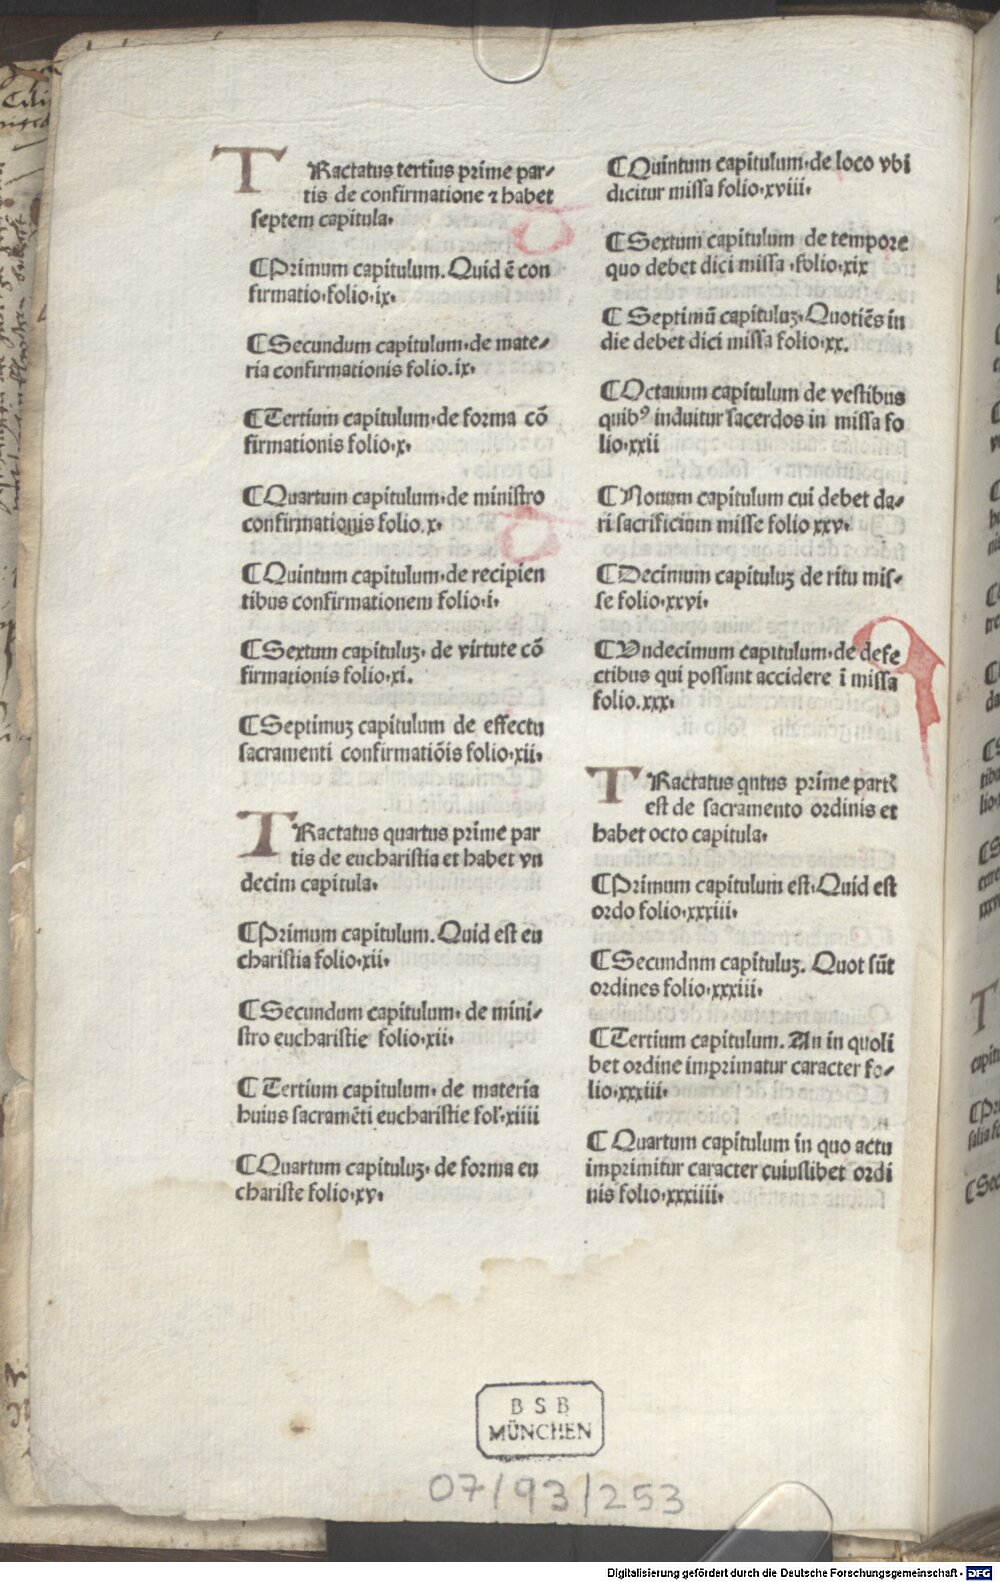 TRactatus tertius prime par-
tis de confirmatione ⁊ habet
septem capitula.
¶Primum capitulum. Quid ē con
firmatio.folio.ix.
¶Secundum capitulum.de mate-
ria confirmationis folio.ix.
¶Tertium capitulum.de forma cō
firmationis folio.x.
¶Quartum capitulum.de ministro
confirmationis folio.x.
¶Quintum capitulum.de recipien
tibus confirmationem folio.i.
¶Sextum capituluꝫ. de virtute cō
firmationis folio.xi.
¶Septimuꝫ capitulum de effectu
sacramenti confirmatiōis folio.xii.
TRactatus quartus prime par
tis de eucharistia et habet vn
decim capitula.
¶Primum capitulum. Quid est eu
charistia folio.xii.
¶Secundum capitulum. de mini-
stro eucharistie folio.xii.
¶Tertium capitulum. de materia
huius sacramēti eucharistie fol'.xiiii
¶Quartum capituluꝫ. de forma eu
chariste folio.xv.
¶Quintum capitulum.de loco vbi
dicitur missa folio.xviii.
¶Sextum capitulum de tempore
quo debet dici missa .folio.xix
¶Septimū capituluꝫ.Quotiēs in
die debet dici missa folio.xx.
¶Octauum capitulum de vestibus
quibꝰ induitur sacerdos in missa fo
lio.xxii
¶Nonum capitulum cui debet da-
ri sacrificium misse folio xxv.
¶Decimum capituluꝫ de ritu mis-
se folio.xxvi.
¶Vndecimum capitulum.de defe
ctibus qui possunt accidere ī missa
folio.xxx.
TRactatus qntus prime partꝭ
est de sacramento ordinis et
habet octo capitula.
¶Primum capitulum est.Quid est
ordo folio.xxxiii.
¶Secundnm capituluꝫ. Quot sūt
ordines folio.xxxiii.
¶Tertium capitulum. An in quoli
bet ordine imprimatur caracter fo-
lio.xxxiii.
¶Quartum capitulum in quo actu
imprimitur caracter cuiuslibet ordi
nis folio.xxxiiii.
BSB
MÜNCHEN
07/93/253
Digitalisierung gefördert durch die Deutsche Forschungsgemeinschaft - DFG